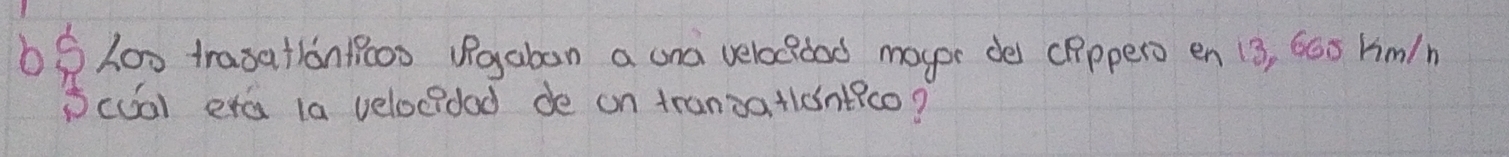 b Si los trasatlánticos viajaban a una velocidad mayor del clippero en 13,665 km/h
¿cuál era la velocidad de un transatlántico?